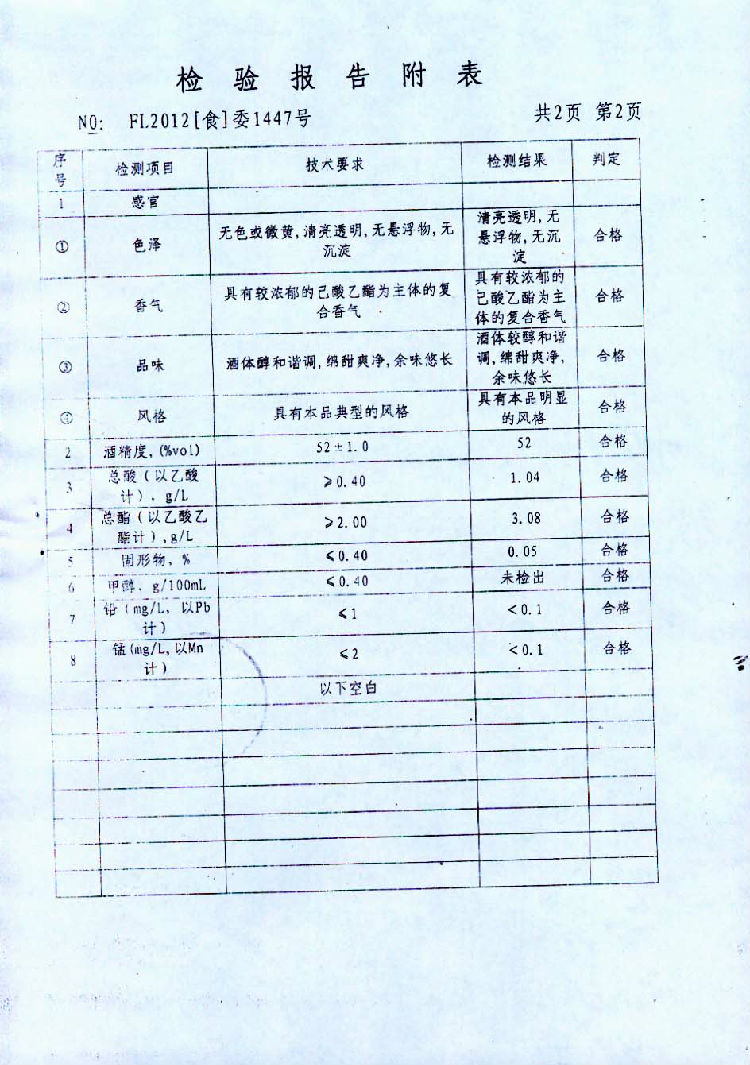 检验报告附表
NO: FL2012[食]委1447号 共2页 第2页
序号 检测项目 技术要求 检测结果 判定
1 感官
① 色泽 无色或微黄,清亮透明,无悬浮物,无沉淀 清亮透明,无悬浮物,无沉淀 合格
② 香气 具有较浓郁的己酸乙酯为主体的复合香气 具有较浓郁的己酸乙酯为主体的复合香气 合格
③ 品味 酒体醇和谐调,绵甜爽净,余味悠长 酒体较醇和谐调,绵甜爽净,余味悠长 合格
④ 风格 具有本品典型的风格 具有本品明显的风格 合格
2 酒精度,(%vol) 52±1.0 52 合格
3 总酸(以乙酸计), g/L ≥0.40 1.04 合格
4 总酯(以乙酸乙酯计),g/L ≥2.00 3.08 合格
5 固形物, % ≤0.40 0.05 合格
6 甲醇, g/100mL ≤0.40 未检出 合格
7 铅(mg/L, 以Pb计) ≤1 <0.1 合格
8 锰(mg/L,以Mn计) ≤2 <0.1 合格
以下空白